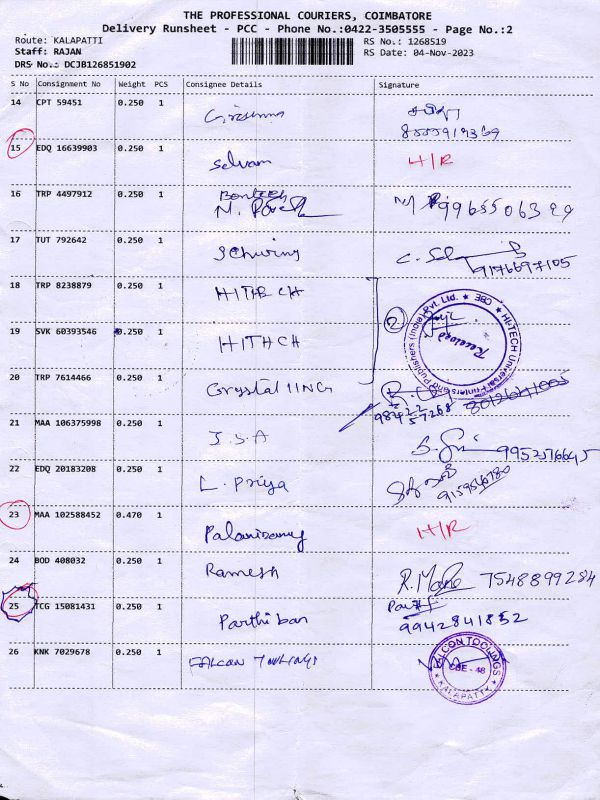 THE PROFESSIONAL COURIERS, COIMBATORE
Delivery Runsheet - PCC - Phone No.:0422-3505555 - Page No.:2
Route: KALAPATTI
Staff: RAJAN
DRS No.: DCJB126851902
RS No.: 1268519
RS Date: 04-Nov-2023
S No Consignment No Weight PCS Consignee Details Signature
14 CPT 59451 0.250 1
15 EDQ 16639903 0.250 1 Selvam H/R
16 TRP 4497912 0.250 1
17 TUT 792642 0.250 1 Schwing C.
9176697105
18 TRP 8238879 0.250 1 HITECH
19 SVK 60393546 0.250 1 HITHCH
2
HI-TECH Universal Printers and Publishers (India) Pvt. Ltd. ★ CBE ★
Received
20 TRP 7614466 0.250 1 Crystal
98422
57268
21 MAA 106375998 0.250 1 J.S.A 9952766645
22 EDQ 20183208 0.250 1 L. Priya
9159540780
23 MAA 102588452 0.470 1 Palanisamy H/R
24 BOD 408032 0.250 1 Ramesh 7548899284
25 TCG 15081431 0.250 1 Parthiban
9942841852
26 KNK 7029678 0.250 1 FALCON TOOLINGS
FALCON TOOLINGS
CBE - 48
★ KALAPATTI ★